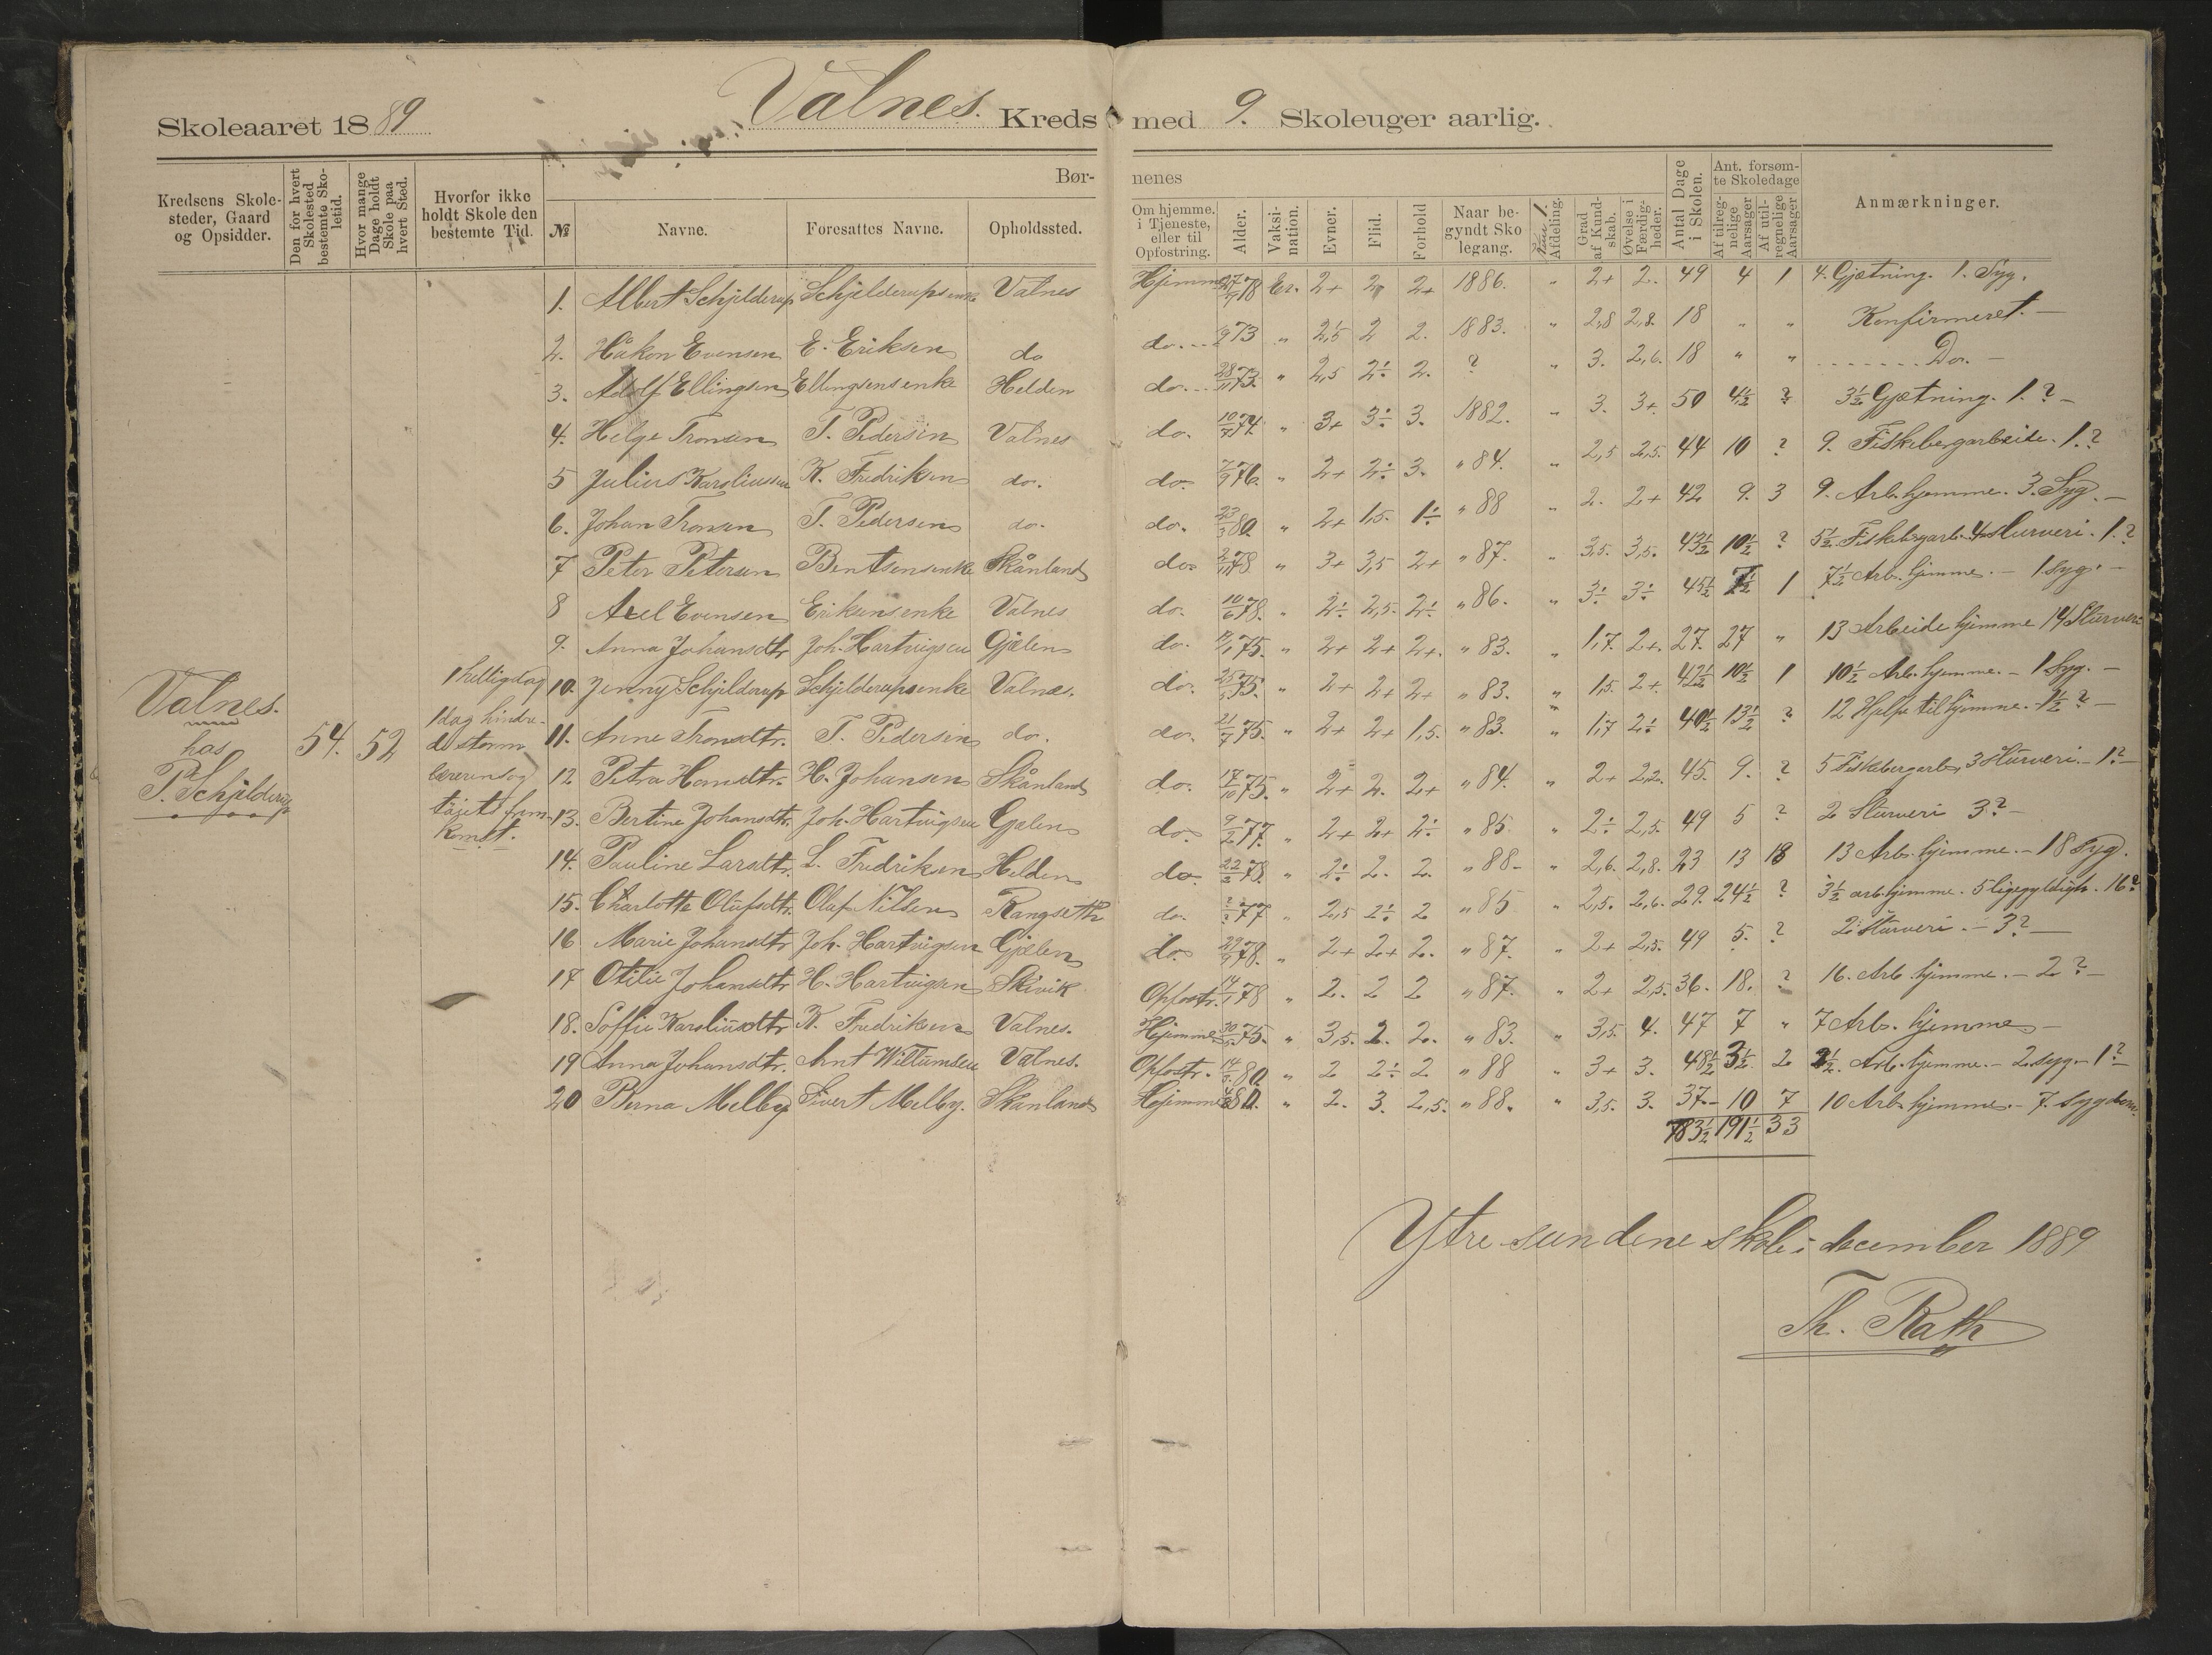 Skoleaaret 1889 Valnes. Kreds med 9. Skoleuger aarlig.
Kredsens Skolesteder, Gaard og Opsidder. Den for hvert Skolested bestemte Skoletid. Hvor mange Dage holdt Skole paa hvert Sted. Hvorfor ikke holdt Skole den bestemte Tid. Børnenes
№ Navne. Foresattes Navne. Opholdssted. Om hjemme, i Tjeneste, eller til Opfostring. Alder. Vaksination. Evner. Flid. Forhold Naar begyndt Skolegang. Afdeling. Grad af Kundskab. Øvelse i Færdigheder. Antal Dage i Skolen. Ant. forsømte Skoledage Af tilregnelige Aarsager Af utilregnelige Aarsager Anmærkninger.
Valnes.
hos
P. Schjelderup
54. 52
1 helligdag
1 dag hindrede storm
lærerens og
tøjets fremkmst.
1. Albert Schjelderup Schjelderups enke Valnes Hjemme 27/7 78 Er. 2+ 2 2+ 1886. " 2+ 2. 49 4 1 4. Gjætning. 1. Syg.
2. Håkon Evensen E. Eriksen do do. 73 " 2,5 2 2. 1883. " 2,8 2,8. 18 " " Konfirmeret. —
3. Adolf Ellingsen Ellingsens enke Helden do. 28/11 73. " 2,5 2÷ 2. ? " 3. 2,6. 18 " " Do. —
4. Helge Tronsen T. Pedersen Valnes do. 10/7 74. " 3+ 3÷ 3. 1882. " 3. 3+. 50 4½ ? 3½ Gjætning. 1. ? —
5 Julius Karoliussen K. Fredriksen do. do. 7/9 76. " 2+ 2÷ 3. " 84. " 2,5 2,5. 44 10 ? 9. Fiskebergarbeide. 1. ?
6. Johan Tronsen T. Pedersen do. do. 23/3 80. " 2+ 1,5. 1÷ " 88 " 2. 2+ 42 9. 3 9. Arb. hjemme. 3. Syg. —
7 Peter Petersen Bentsens enke Skånland do. 2/11 78 " 3+ 3,5 2+ " 87. " 3,5. 3,5. 43½ 10½ ? 5½ Fiskebergarb. 4 Sturveri. 1. ?
8 Axel Evensen Eriksens enke Valnes do. 10/6 78. " 2÷ 2,5. 2÷ " 86. " 3÷ 3÷ 45½ 7½ 1 7½ Arb. hjemme. — 1 syg. —
9. Anna Johansdtr Joh. Hartvigsen Gjelen do. 75. " 2+ 2+ 2+. " 83. " 1,7. 2+. 27. 27 " 13 Arbeide hjemme 14 Sturveri
10. Jenny Schjelderup Schjelderups enke Valnes. do. 75. " 2+ 2+ 2+ " 83. " 1,5. 2+. 42½ 10½ 1 10½ Arb. hjemme. — 1 Syg. —
11. Anne Tronsdtr. T. Pedersen do. do. 21/7 75. " 2+ 2+ 1,5. " 83. " 1,7 2÷ 40½ 13½ ? 12 Hjelpe til hjemme. 1½ ? —
12 Petra Hansdtr. H. Johansen Skånland do. 17/10 75. " 2+ 2. 2+ " 84. " 2+ 2,2. 45. 9. ? 5 Fiskebergarb. 3 Sturveri. — 1 ? —
13. Bertine Johansdtr. Joh. Hartvigsen Gjelen do. 9/2 77. " 2+ 2+ 2÷ " 85. " 2÷ 2,5. 49 5 ? 2 Sturveri 3 ? —
14. Pauline Larsdtr. L. Fredriksen Helden do. 78. " 2÷ 2. 2. " 88. " 2,6. 2,8. 23 13 18 13 Arb. hjemme. — 18 Syg.
15. Charlotte Olufsdtr. Olaf Nilsen Rangseth do. ?/? 77 " 2,5 2÷ 2 " 85 " 2,5. 2,6. 29. 24½ ? 3½ arb. hjemme. 5 ligegyldigh. 16 ?
16 Marie Johansdtr Joh. Hartvigsen Gjelen do. 29/9 78. " 2+ 2+ 2. " 87. " 2+ 2,5. 49 5. ? 2. Sturveri. — 3 ? —
17 Otilie Johansdtr H. Hartvigsen Skivik Opfostr. 14/1 78 " 2. 2 2 " 87. " 2+ 2,5. 36. 18. ? 16. Arb. hjemme. — 2 ? —
18. Soffie Karoliusdtr K. Fredriksen Valnes. Hjemme 75. " 3,5. 2. 2. " 83. " 3,5 4. 47 7 " 7 Arb. hjemme —
19 Anna Johansdtr. Arnt Willumsen Valnes. Opfostr. 80. " 2 2÷ 2 " 88 " 3+ 3. 48½ 3½. 2 2½. Arb. hjemme. — 2 syg. — 1 ? —
20 Berna Melby Sivert Melby. Skånland Hjemme 80. " 2. 3. 2,5. " 88. " 3,5. 3. 37. — 10 7 10 Arb. hjemme. — 7. Sygdom.
783½ 191½ 33
Ytre sundene skole i december 1889
Th. Rath